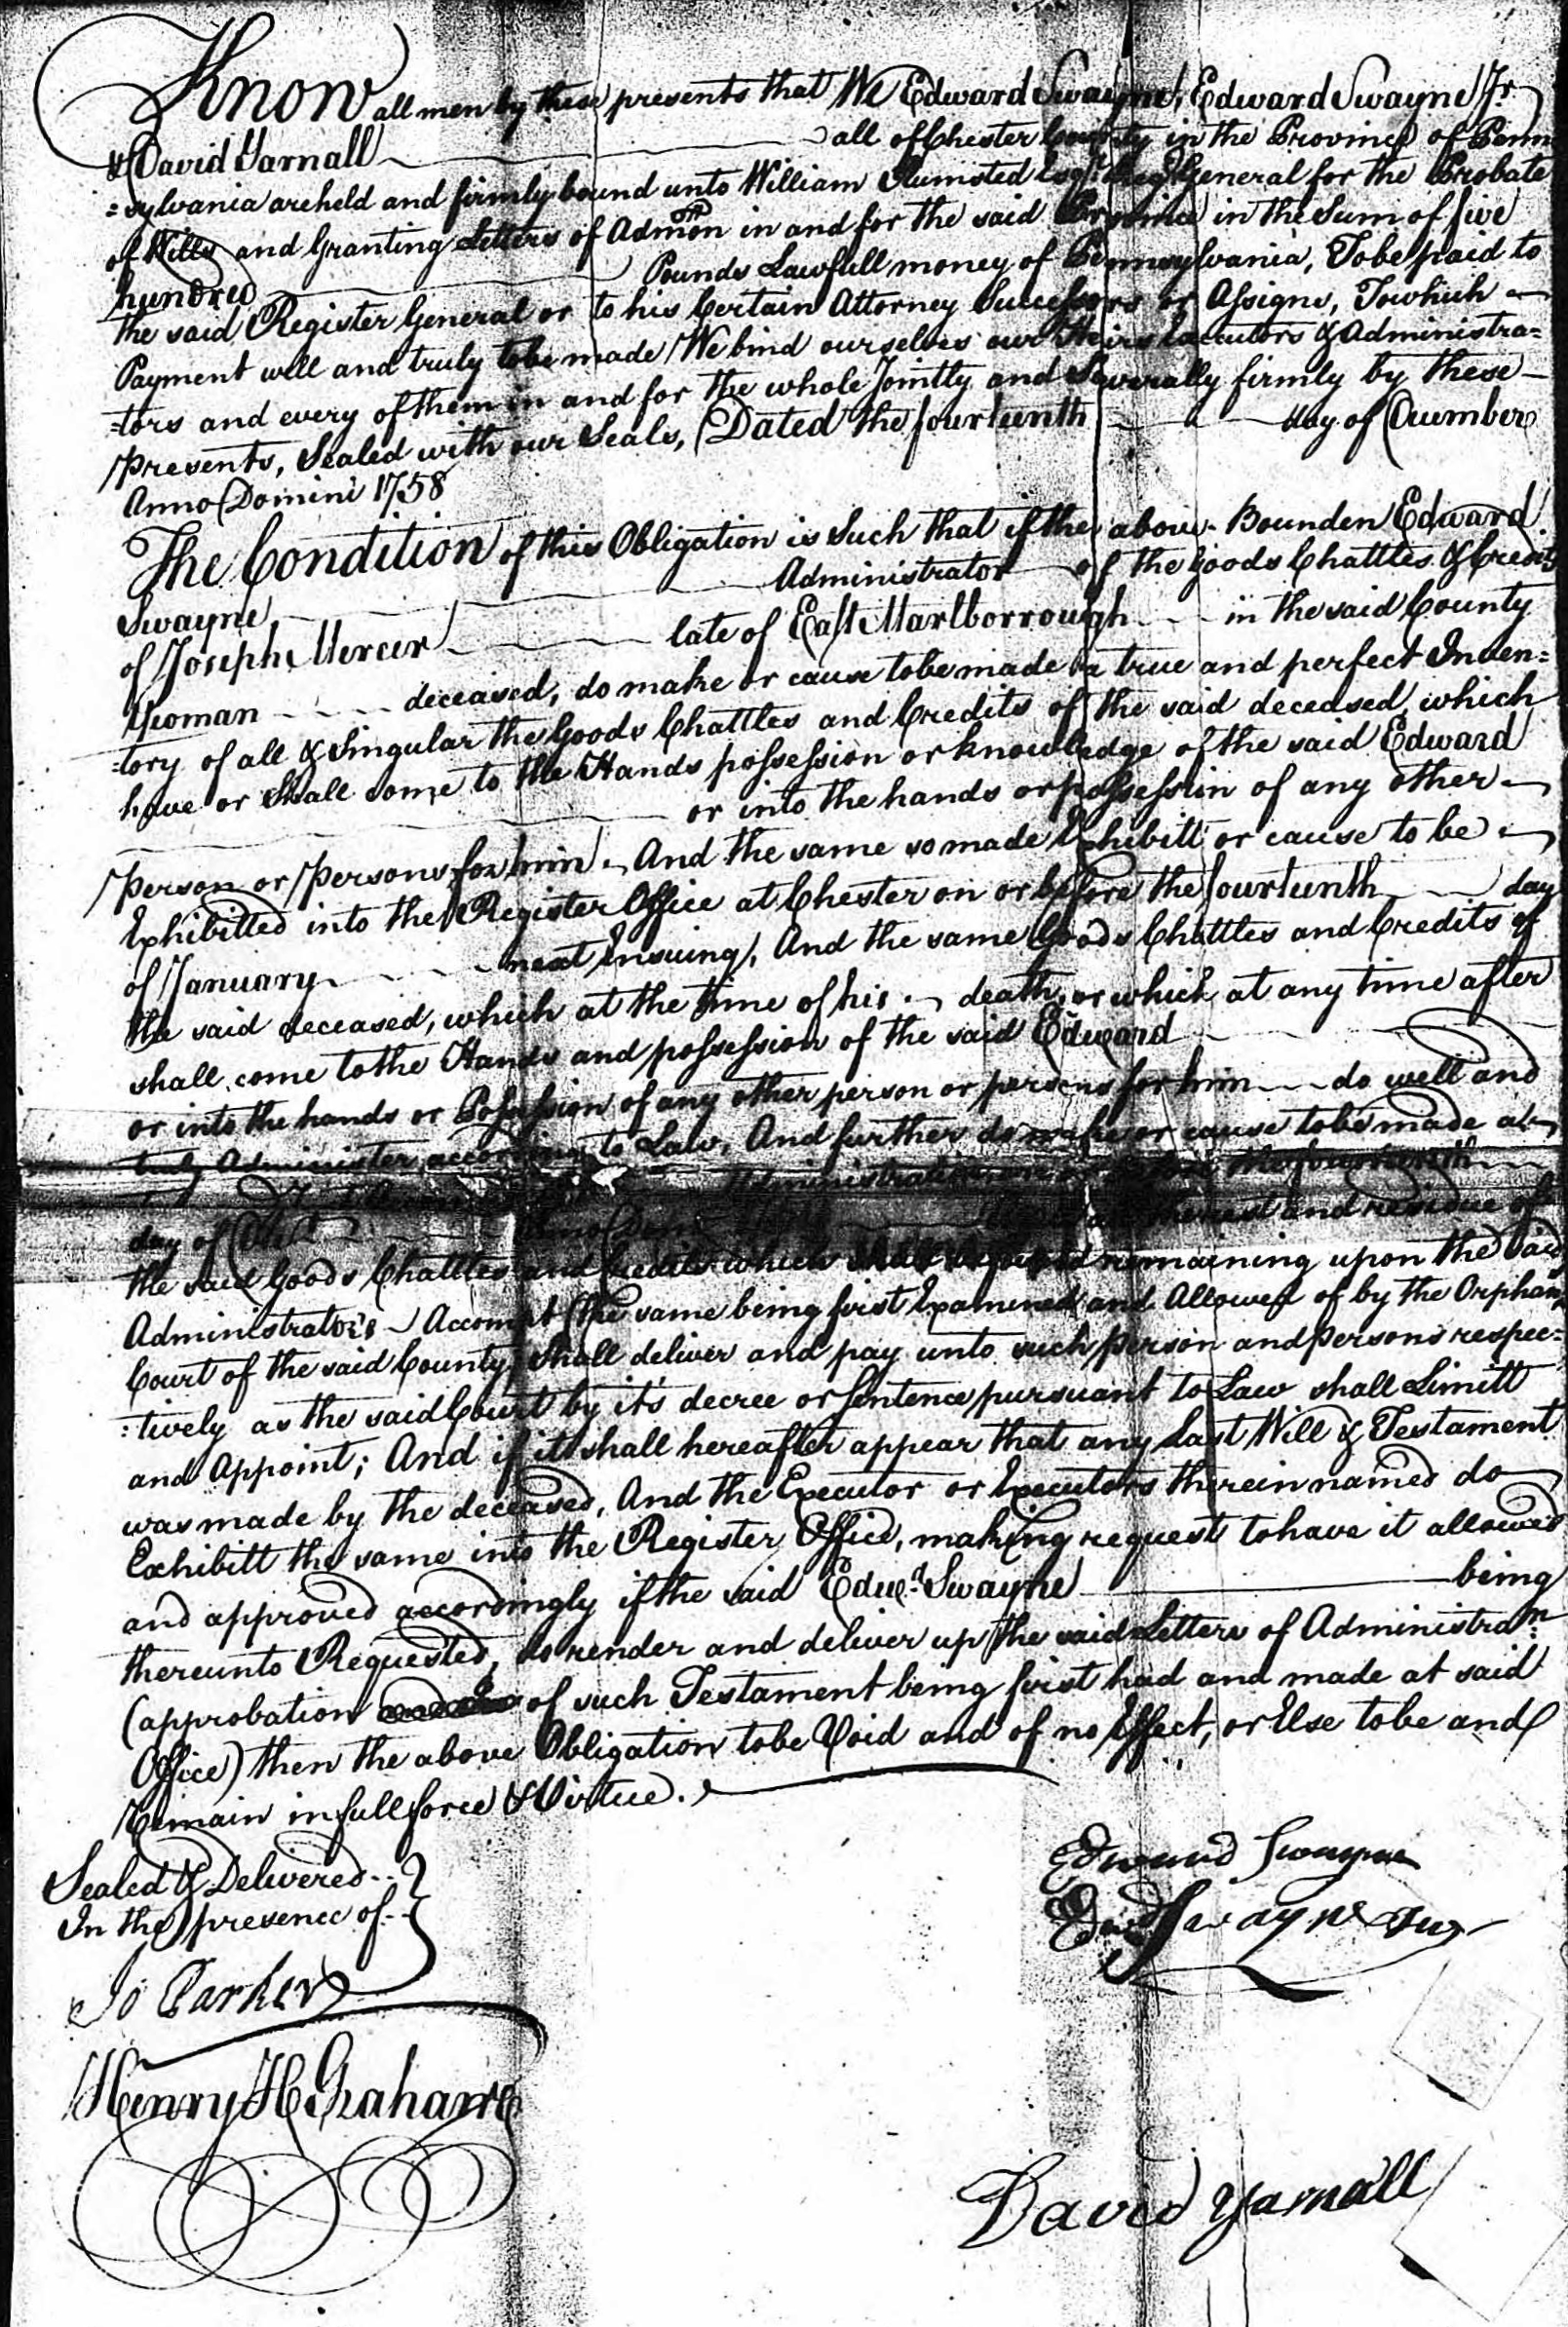 Know all men by these presents that We Edward Swayne, Edward Swayne Jr
& David Yarnall all of Chester County in the Province of Penn
=sylvania are held and firmly bound unto William Plumsted Esqr. Regr. General for the Probate
of Wills and Granting Letters of Admon in and for the said Province in the Sum of five
hundred Pounds Lawfull money of Pennsylvania, To be paid to
the said Register General or to his Certain Attorney Successors or Assigns, To which
Payment well and truly to be made We bind ourselves our Heirs Executors & Administra=
=tors and every of them in and for the whole Jointly and Severally firmly by these
presents, Sealed with our Seals, Dated the fourteenth day of December
Anno Domini 1758
The Condition of this Obligation is Such that if the above Bounden Edward
Swayne Administrator of the Goods Chattles & Credits
of Joseph Mercer late of East Marlborrough in the said County
Yeoman deceased, do make or cause to be made a true and perfect Inven=
=tory of all & Singular the Goods Chattles and Credits of the said deceased, which
have or Shall come to the Hands possession or knowledge of the said Edward
or into the hands or possession of any other
person or persons for him And the same so made Exhibitt or cause to be
Exhibitted into the Register Office at Chester on or before the fourteenth day
of January next Ensuing, And the same Goods Chattles and Credits of
the said deceased, which at the time of his death, or which at any time after
shall come to the Hands and possession of the said Edward
or into the hands or Possession of any other person or persons for him do well and
truly Administer according to Law, And further do make or cause to be made a
Administration the fourteenth
day of the rest and residue of
the said Goods Chattles and Credits which shall be found remaining upon the said
Administrator's Accompt (the same being first Examined and Allowed of by the Orphans
Court of the said County) Shall deliver and pay unto such person and persons respec=
=tively as the said Court by it's decree or Sentence pursuant to Law shall Limitt
and Appoint; And if it shall hereafter appear that any Last Will & Testament
was made by the deceased, And the Executor or Executors therein named do
Exhibitt the same into the Register Office, making request to have it allowed
and approved accordingly if the said Edwd. Swayne being
thereunto Requested, do render and deliver up the said Letters of Administran.
(approbation of such Testament being first had and made at said
Office) then the above Obligation to be Void and of no Effect, or Else to be and
Remain in full force & Virtue.
Sealed & Delivered
In the presence of
Jo Parker
Henry H Graham
Edward Swayne
Edwd Swayne Jur
David Yarnall